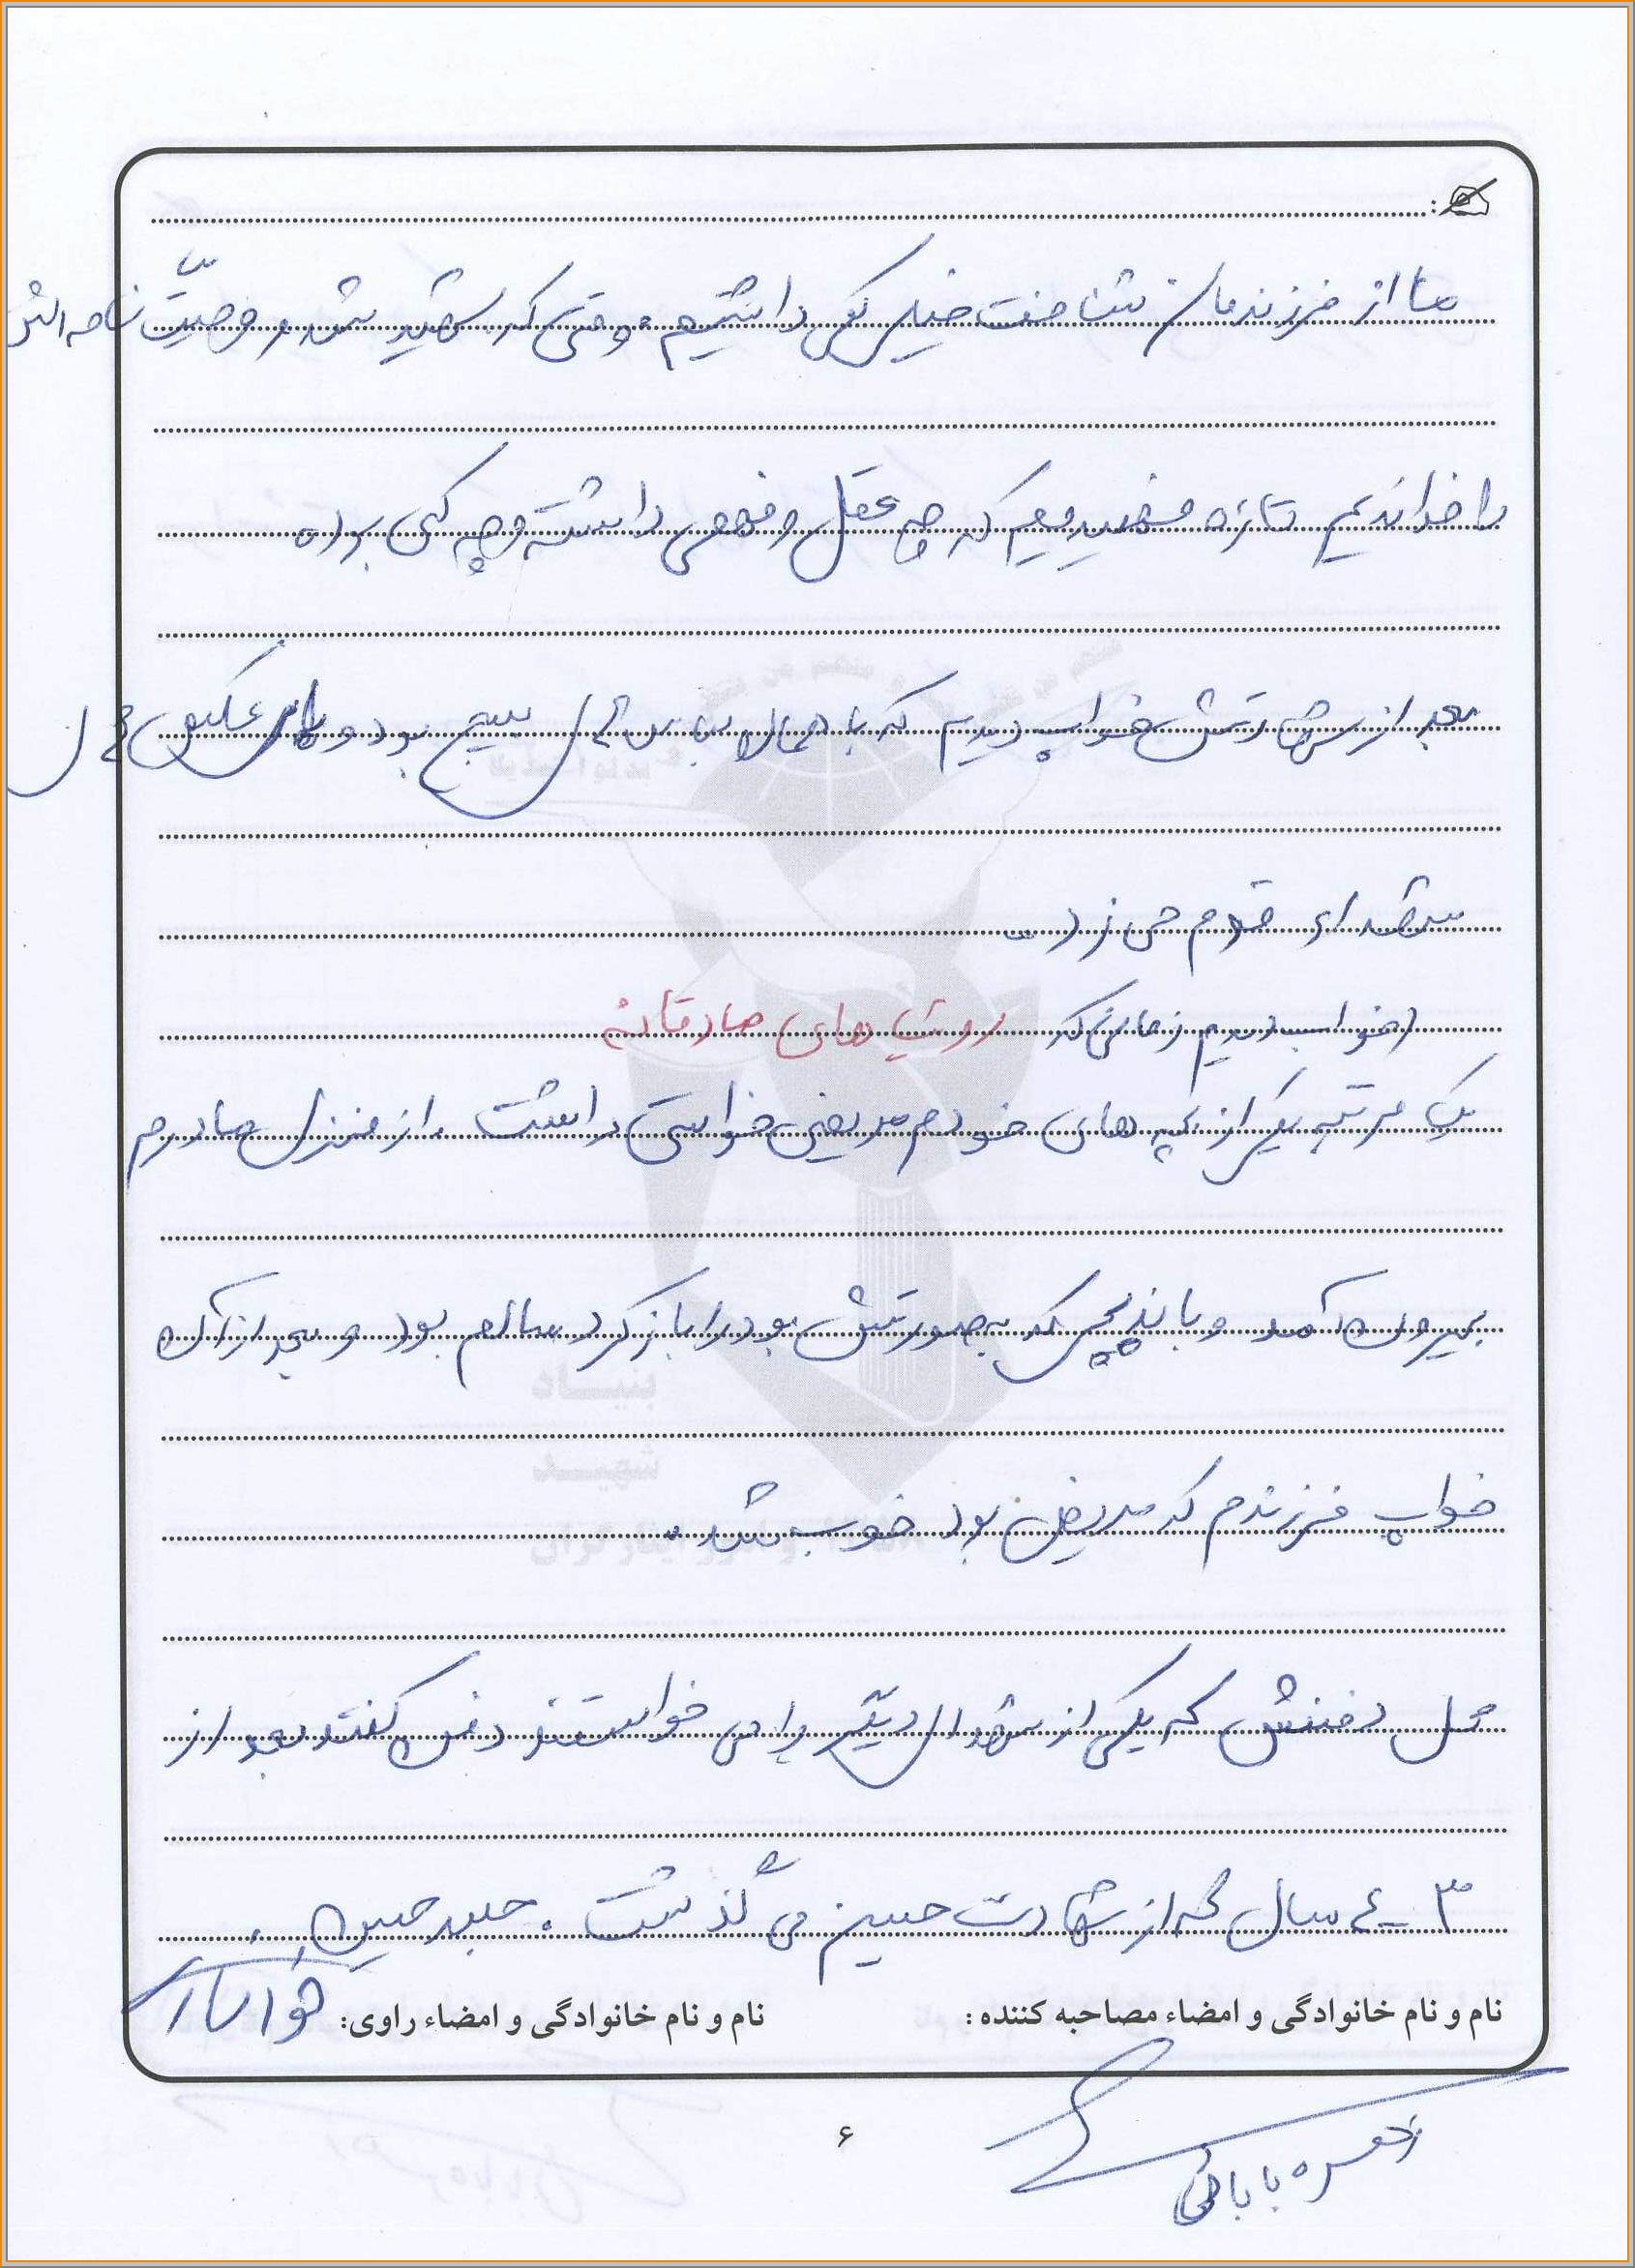 ما از فرزندمان شناخت خیلی کمی داشتیم وقتی که شهید شد و وصیّت نامه اش
را خواندیم تازه فهمیدیم که چه عقل و فهمی داشته و چه کسی بوده
بعد از شهادتش خواب دیدم که با همان لباس های بسیج بود و
شهدا قدم می زد
خواب دیدم زمانی که رویا های صادقانه
یک مرتبه یکی از بچه های خودم مریضی داشت . از منزل مادرم
بیرون آمد و باند پیچی که به صورتش بود را باز کرد سالم بود و بعد از آن
خواب فرزندم که مریض بود خوب شد .
محل دفنش که یکی از شهدای دیگر را می خواستند دفن کنند بعد از
۳ - ۴ سال که از شهادت حسین می گذشت . جسد حسین
نام و نام خانوادگی و امضاء مصاحبه کننده : نام و نام خانوادگی و امضاء راوی:
بابائی
۶
بنیاد
شهید